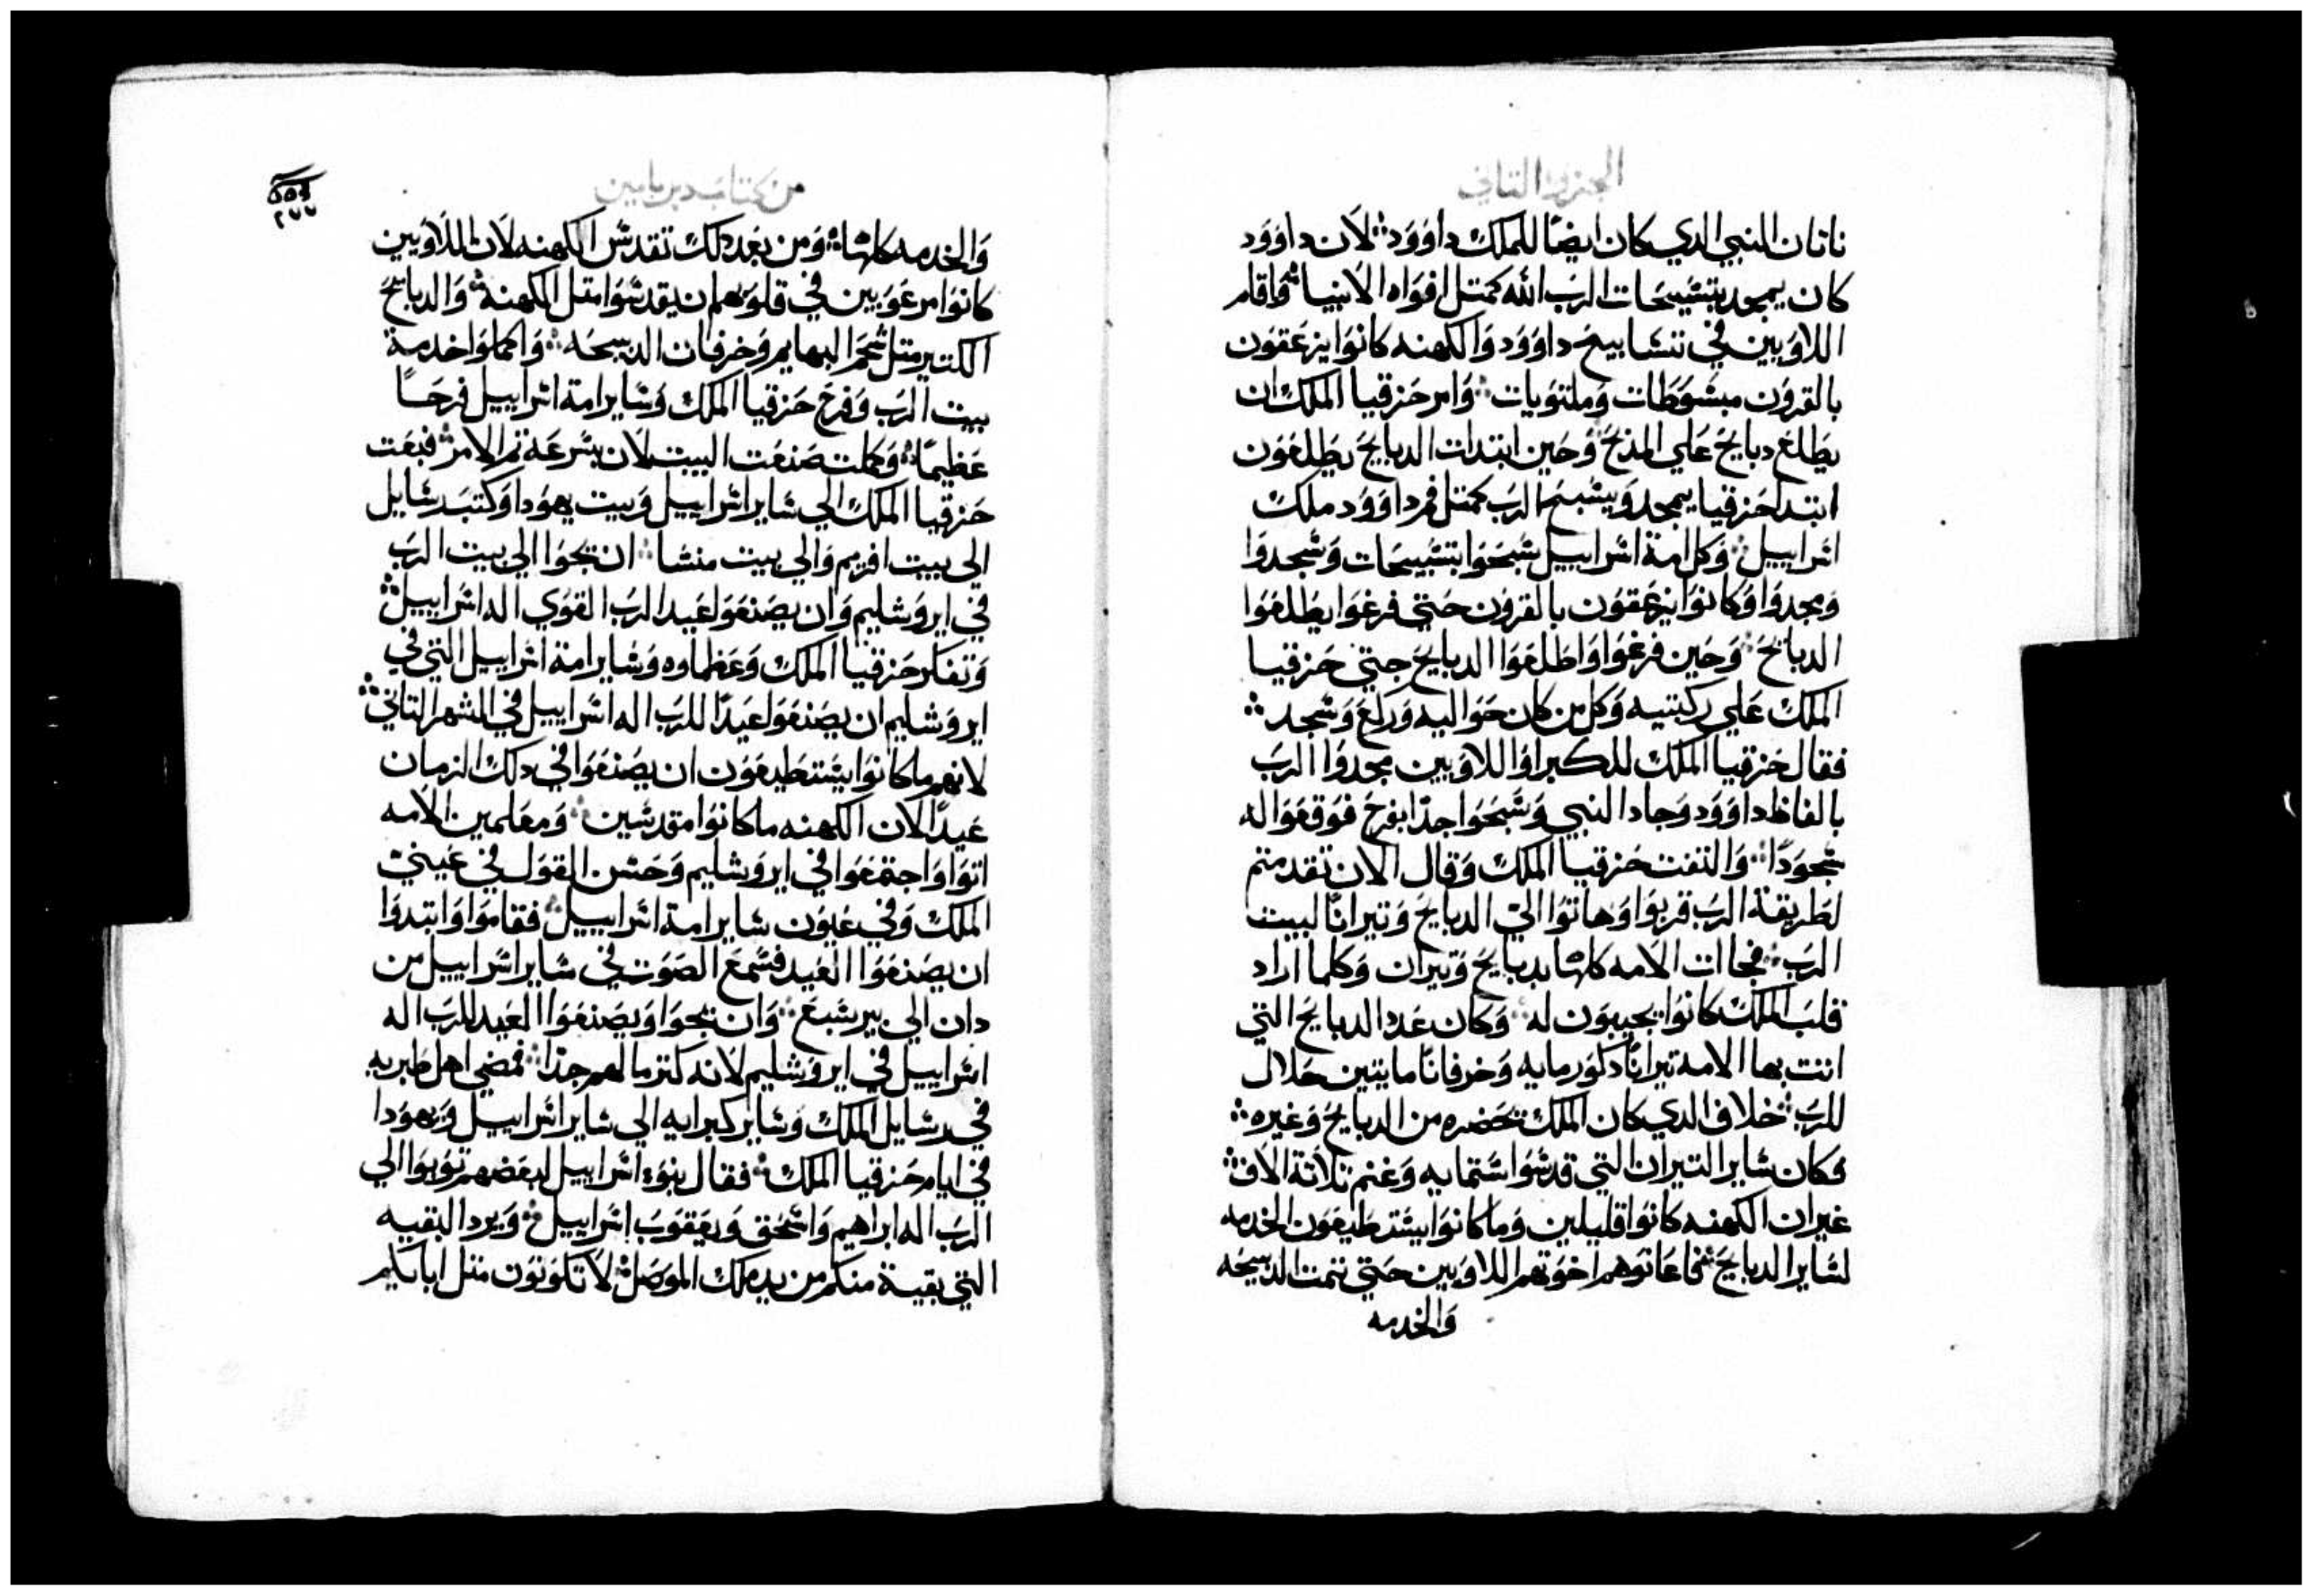 الجزو التاني
ناتان النبي الدي كان ايضًا للملك داوَود ۞ لان داوَود
كان يمجد بتشبيحات الرب الله كمتل افواه الانبيا ۞ واقام
اللاويين في تشابيح داوود والكهنه كانوا يزعقون
بالقرون مبشوطات وملتويات ۞ وامر حزقيا الملك ان
يطلع دبايح علي المذبح وحين ابتدات الدبايح يطلعون
ابتدا حزقيا يمجد ويشبح الرب كمتل فم داوود ملك
اشراييل ۞ وكل امة اشراييل شبحوا بتشبيحات وشجدوا
ومجدوا وكانوا يزعقون بالقرون حتي فرغوا يطلعوا
الدبايح ۞ وحين فرغوا واطلعوا الدبايح جتي حزقيا
الملك علي ركبتيه وكل من كان حواليه وركع وشجد ۞
فقال حزقيا الملك للكبرا واللاويين مجدوا الرب
بالفاظ داوود وجاد النبي وشبحوا جدًا بفرح فوقعوا له
شجودًا ۞ والتفت حزقيا الملك وقال الان تقدمتم
لطريقة الرب قربوا وهاتوا الي الدبايح وتيرانًا لبيت
الرب ۞ فجاات الامه كلها بدبايح وتيران وكلما اراد
قلب الملك كانوا يجيبون له ۞ وكان عدد الدبايح التي
اتت بها الامه تيرانًا دكور مايه وخرفانًا مايتين حلال
للرب ۞ خلاف الدي كان الملك تحضره من الدبايح وغيره ۞
وكان شاير التيران التي قدشوا شتمايه وغنم تلاتة الاف ۞
غير ان الكهنه كانوا قليلين وما كانوا يشتطيعون الخدمه
لشاير الدبايح ۞ فاعانوهم اخوتهم اللاويين حتي تمت الدبيحه
والخدمه
من كتاب دبريامين
٢٧٧
والخدمه كلها ۞ ومن بعد دلك تقدش الكهنه لان اللاويين
كانوا مرعوبين في قلوبهم ان يقدشوا متل الكهنة ۞ والدبايح
الكتير متل شحم البهايم وخرفان الدبيحه ۞ واكملوا خدمة
بيت الرب وفرح حزقيا الملك وشاير امة اشراييل فرحًا
عظيمًا ۞ وكملت صنعت البيت لان بشرعة تم الامر ۞ فبعت
حزقيا الملك الي شاير اشراييل وبيت يهودا وكتب رشايل
الي بيت افريم والي بيت منشا ۞ ان يجوا الي بيت الرب
في ايروشليم وان يصنعوا عيد الرب القوي اله اشراييل ۞
وتفكر حزقيا الملك وعظماوه وشاير امة اشراييل التي في
ايروشليم ان يصنعوا عيدًا للرب اله اشراييل في الشهر التاني ۞
لانهم ما كانوا يشتطيعون ان يصنعوا في دلك الزمان
عيدًا لان الكهنه ما كانوا مقدشين ۞ ومعلمين الامه
اتوا واجتمعوا في ايروشليم وحشن القول في عيني
الملك وفي عيون شاير امة اشراييل ۞ فقاموا وابتدوا
ان يصنعوا العيد فشمع الصوت في شاير اشراييل من
دان الي بير شبع ۞ وان يجوا ويصنعوا العيد للرب اله
اشراييل في ايروشليم لانه كتر مالهم جدًا ۞ فمضي اهل طبريه
في رشايل الملك وشاير كبرايه الي شاير اشراييل ويهودا
في ايام حزقيا الملك ۞ فقال بنوء اشراييل لبعضهم توبوا الي
الرب اله ابراهيم واشحق ويعقوب اشراييل ۞ ويرد البقيه
التي بقية منكم من يد ملك الموصل ۞ لا تكونون متل اباتكم